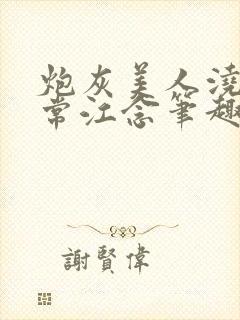 炮灰美人澆
常江念筆趣
謝賢偉